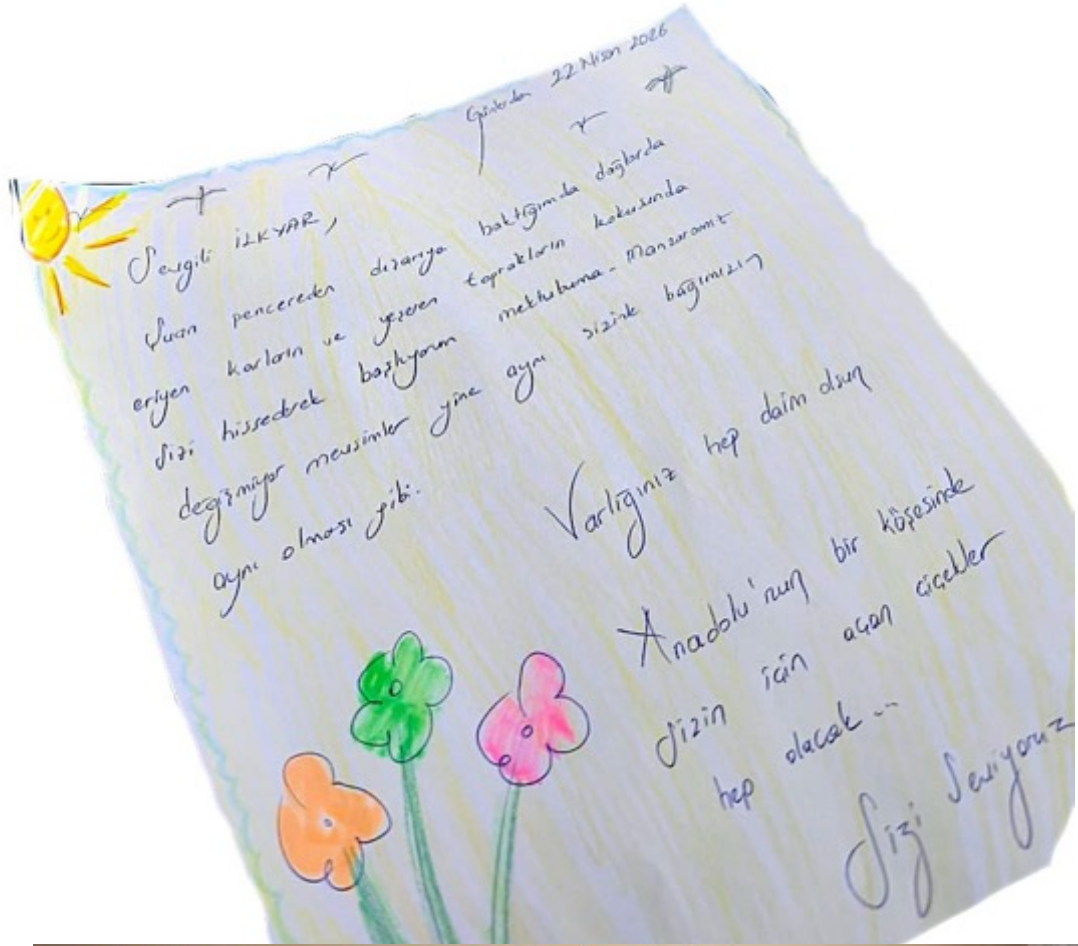 Günlerden 22 Nisan 2026
Sevgili İLKYAR,
Şuan pencereden dışarıya baktığımda dağlarda
eriyen karların ve yeşeren toprakların kokusunda
sizi hissederek başlıyorum mektubuma. Manzaramız
değişmiyor mevsimler yine aynı sizinle bağımızın
aynı olması gibi.
Varlığınız hep daim olsun
Anadolu'nun bir köşesinde
sizin için açan çiçekler
hep olacak...
Sizi Seviyoruz